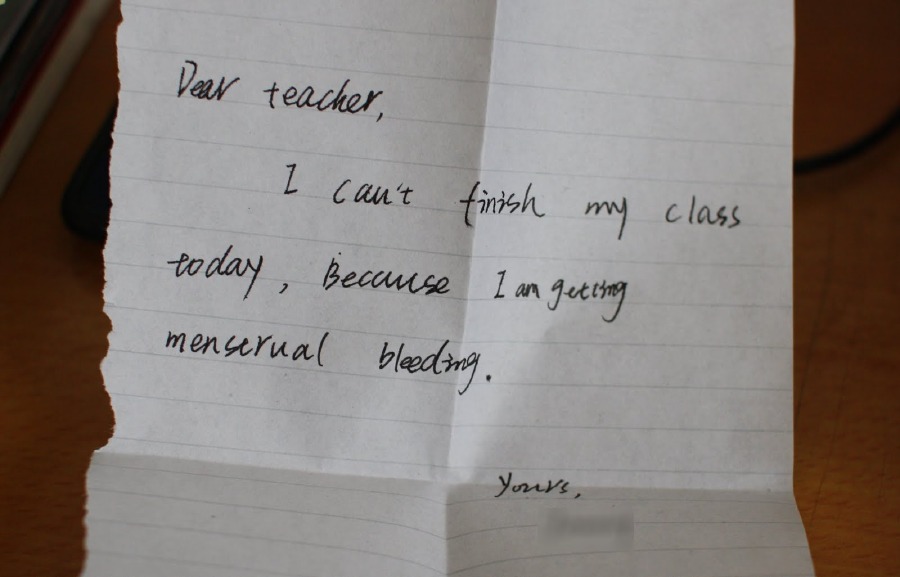 Dear teacher,
I can't finish my class
today, Because I am getting
menstrual bleeding.
Yours,